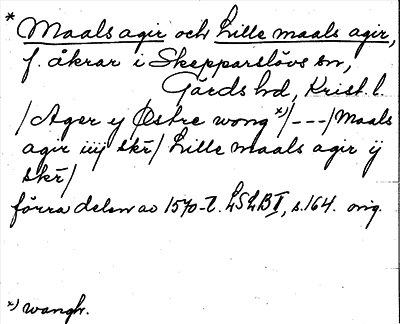 * Maals agir och Lille maals agir,
f. åkrar i Skepparslövs sn,
Gärds hd, Krist. l.
/Ager y Østre wong *)/---/Maals
agir iiij skr̄/ Lille maals agir ij
skr̄/
förra delen av 1570-t. LSLB I, s. 164. orig.
*) wangh.